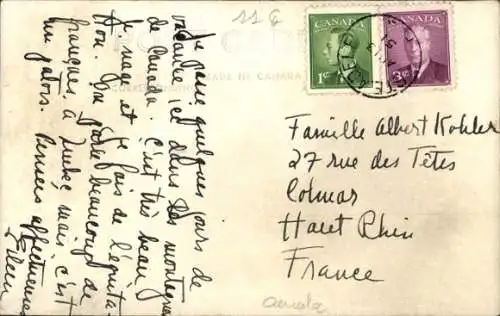 11 G
POST CARD
MADE IN CANADA
CORRESPONDENCE
Je passe quelques jours de
vacances ici dans les montagnes
de Canada. C'est très beau
Je nage et je fais de l'équita-
tion. On parle beaucoup de
français, à Québec mais c'est
un patois. Pensées affectueuses
Eileen
CANADA
1¢
CANADA
3¢
Famille Albert Kohler
27 rue des Têtes
Colmar
Haut Rhin
France